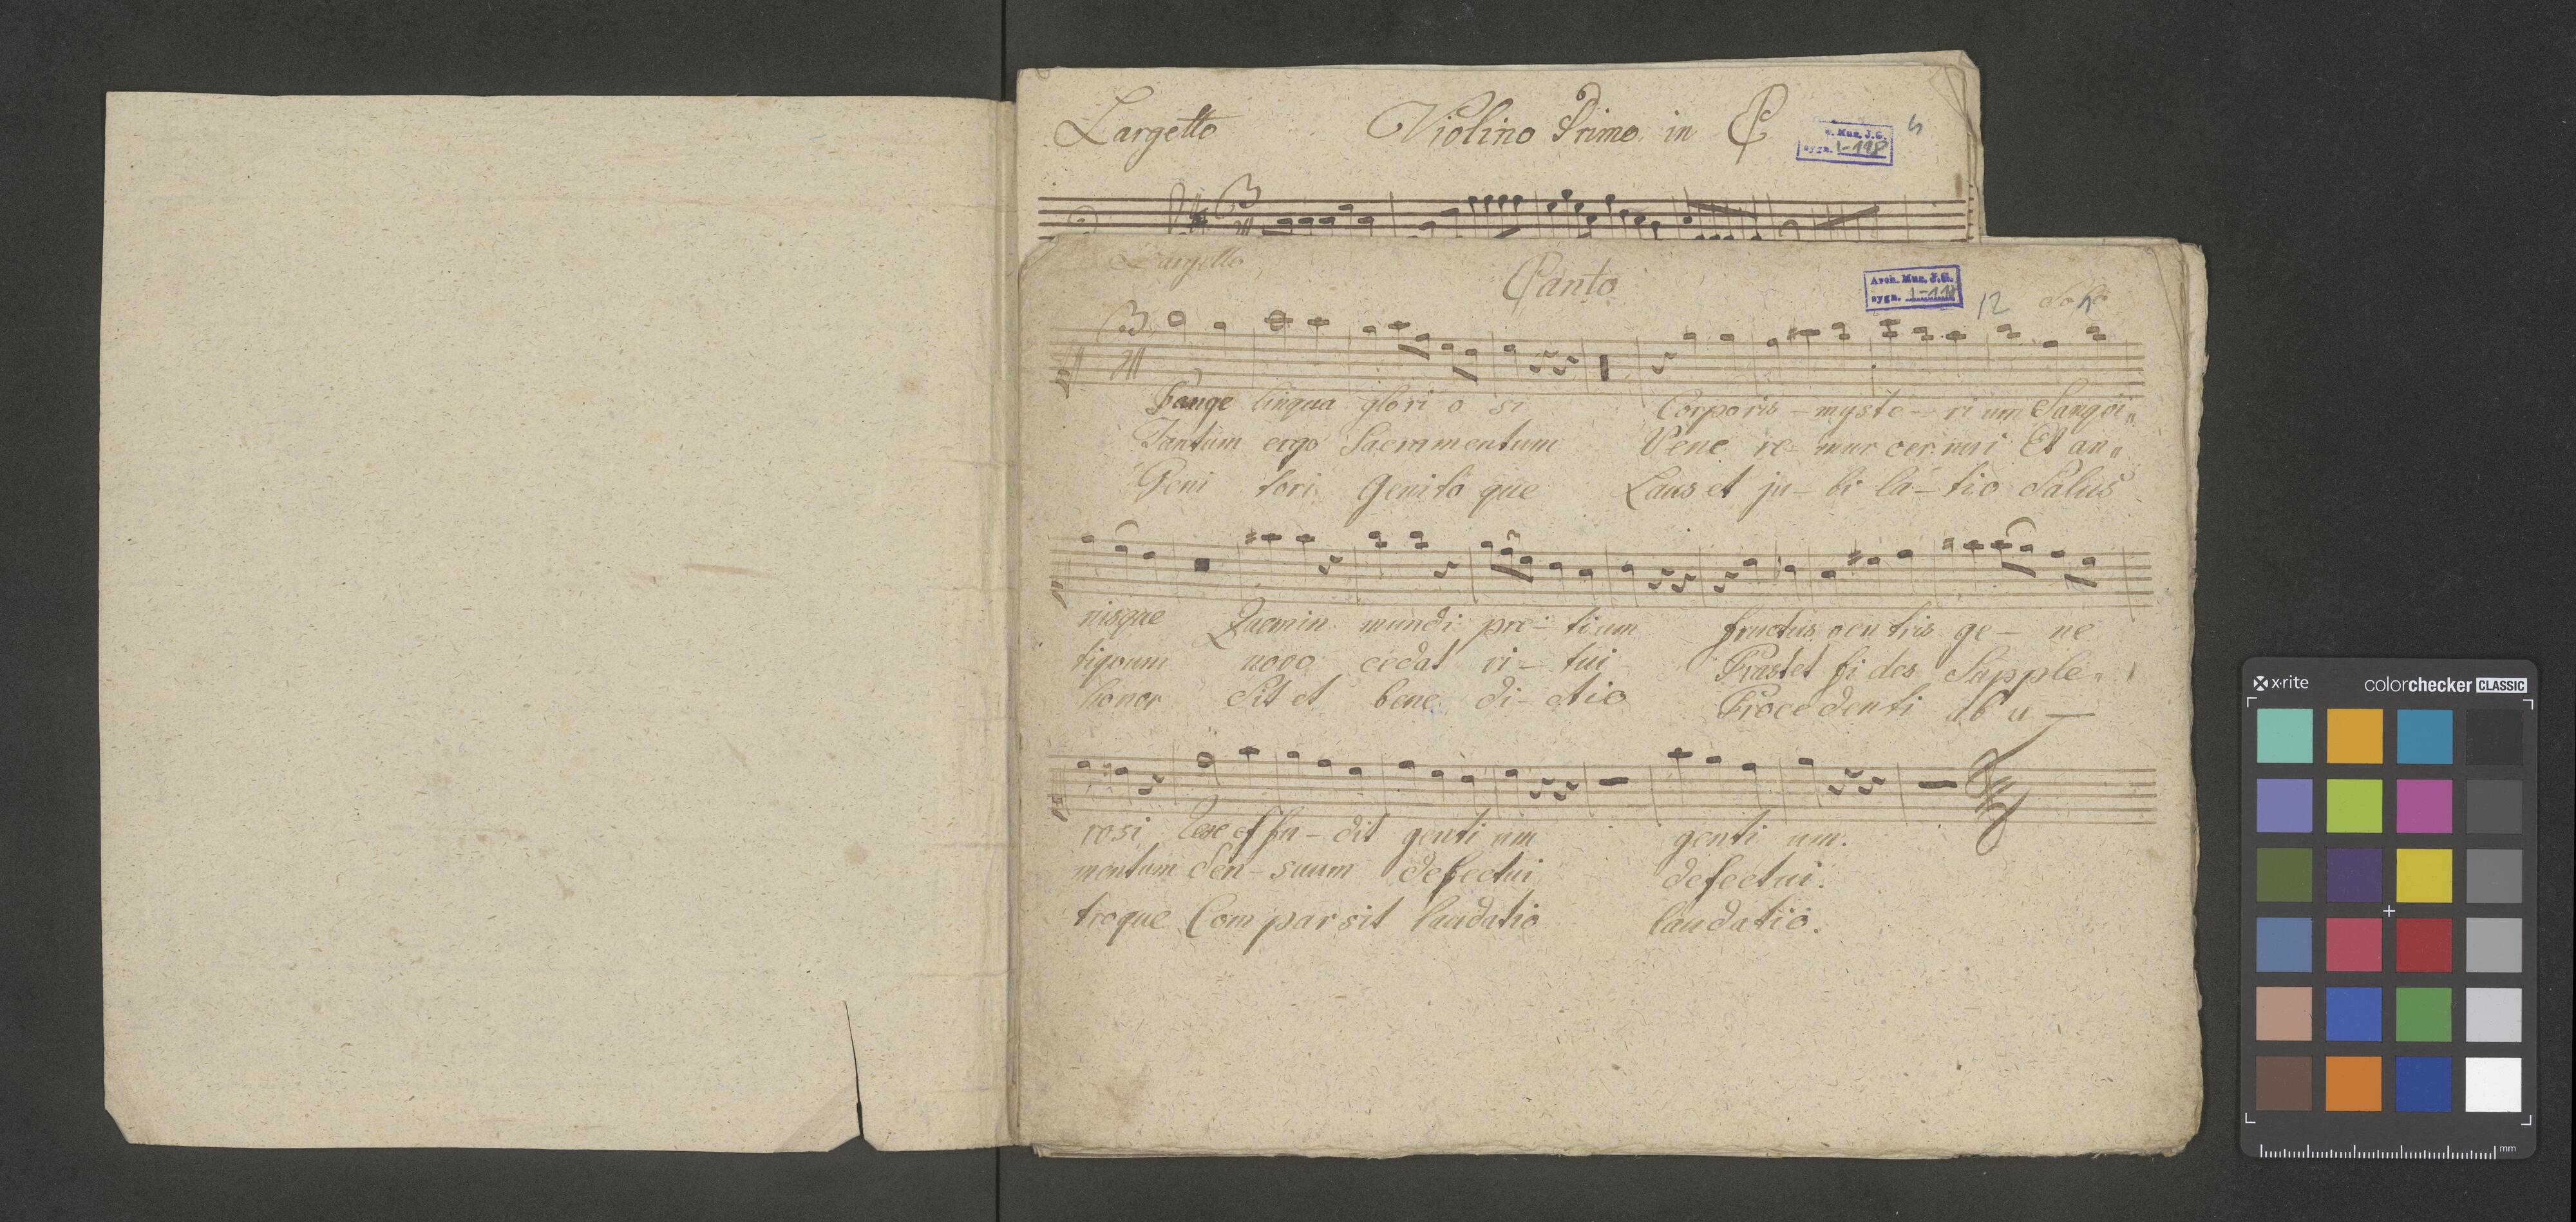 Largetto Violino Primo. in C
Mus. J.G.
sygn. I-118
Largetto
Canto
Arch. Mus. J.G.
sygn. I-118
12 Solo
Pange lingua glori o si Corporis - myste - ri um Sangvi„
Tantum ergo Sacramentum Vene re- mur cernui Et an„
Geni tori Genito que Laus et ju - bi la - tio Salus
nisque Quem in mundi pre - tium fructus ventris ge - ne
tiqvum novo cedat ri - tui Prastet fi des Supple„
honor Sit et bene di - ctio Procedenti ab u -
rosi Rex effu - dit genti um genti um.
mentum Sen - suum defectui defectui.
troque Compar sit laudatio laudatio.
x·rite colorchecker CLASSIC
mm